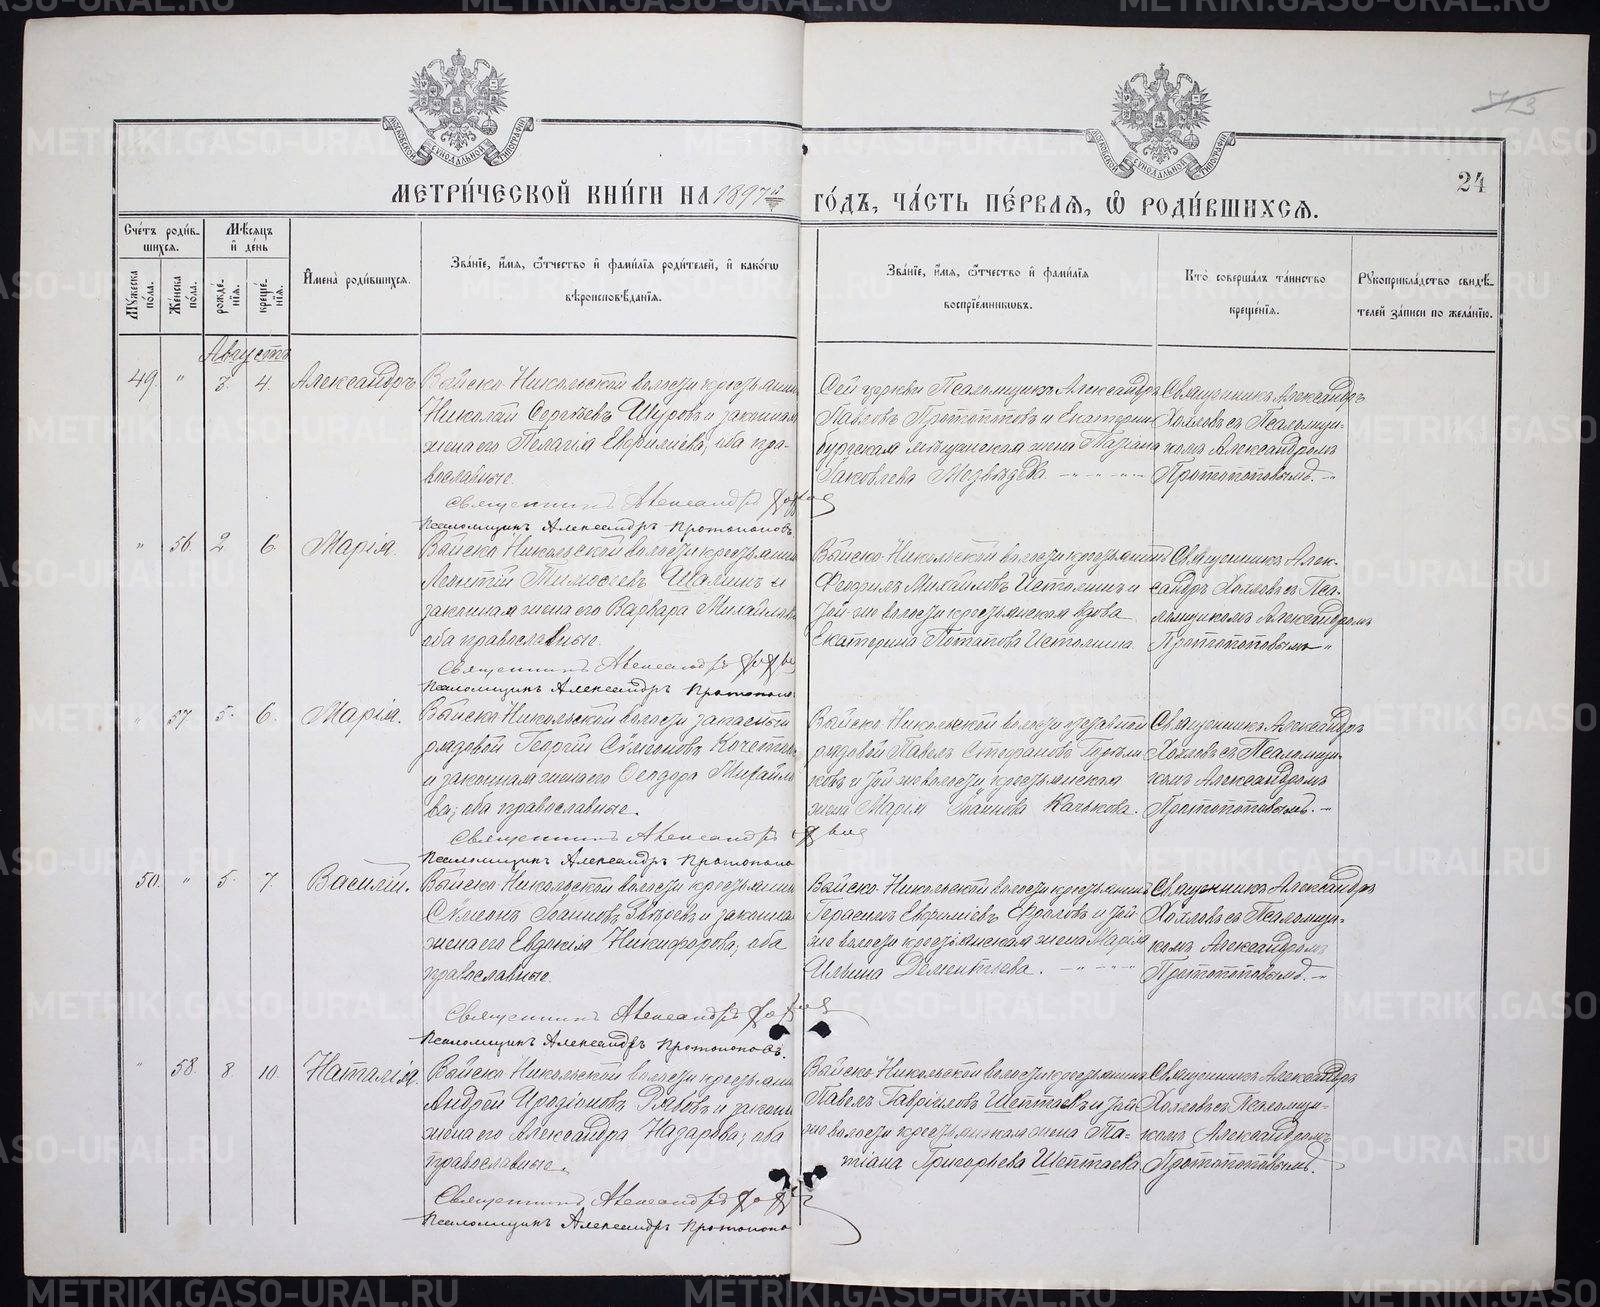 МЕТРИ́ЧЕСКОЙ КНИ́ГИ НА 1897й ГО́ДЪ, ЧА́СТЬ ПЕ́РВАѦ, Ѽ РОДИ́ВШИХСѦ.
24
Сче́тъ роди́вшихсѧ.
Му́жеска по́ла.
Же́нска по́ла.
Мѣ́сяцъ и де́нь
рожде́нїѧ.
креще́нїѧ.
Имена̀ роди́вшихсѧ.
Зва́нїе, и́мѧ, ѻ́тчество и фами́лїѧ роди́телей, и како́гѡ
вѣроисповѣ́данїѧ.
Зва́нїе, и́мѧ, ѻ́тчество и фами́лїѧ
воспрїе́мниковъ.
Кто̀ соверша́лъ та́инство
креще́нїѧ.
Рукоприкла́дство свидѣ́-
телей за́писи по жела́нїю.
Августъ
49. " 3. 4. Александръ.
Войско-Никольской волости крестьянинъ
Николай Сергѣевъ Щуровъ и законная
жена его Пелагія Евфиміева, оба пра-
вославные.
Священникъ Александръ
Псаломщикъ Александръ Протопоповъ
Сей церкви Псаломщикъ Александръ
Павловъ Протопоповъ и Екатерин-
бургская мѣщанская жена Маріана
Іаковлева Медвѣдева.
Священникъ Александръ
Хохловъ съ Псаломщи-
комъ Александромъ
Протопоповымъ.
" 56. 2 6. Марія.
Войско-Никольской волости крестьянинъ
Леонтій Тимоѳеевъ Шалинъ и
законная жена его Варвара Михайлова
оба православные.
Священникъ Александръ
Псаломщикъ Александръ Протопопо
Войско-Никольской волости крестьянинъ
Михайловъ Истоминъ и
той-же волости крестьянская вдова
Екатерина Потапова Истомина.
Священникъ Алек-
сандръ Хохловъ съ Пса-
ломщикомъ Александромъ
Протопоповымъ
" 57. 5. 6. Марія.
Войско-Никольской волости запасный
рядовой Георгій Сѵмеоновъ
и законная жена его Ѳеодора Михайло
ва; оба православные.
Священникъ Александръ
Псаломщикъ Александръ Протопопо
Войско-Никольской волости
рядовой Павелъ Стефановъ
ковъ и той-же волости крестьянская
жена Марія Іоаннова Калькова.
Священникъ Александръ
Хохловъ съ Псаломщи-
комъ Александромъ
Протопоповымъ.
50. " 5. 7. Василій.
Войско-Никольской волости крестьянинъ
Сѵмеонъ Іоанновъ и законная
жена его Евдокія Никифорова; оба
православные.
Священникъ Александръ
Псаломщикъ Александръ Протопоповъ.
Войско-Никольской волости крестьянинъ
Герасимъ Евфиміевъ Фроловъ и той-
же волости крестьянская жена Марія
Ильина Дементьева.
Священникъ Александръ
Хохловъ съ Псаломщи-
комъ Александромъ
Протопоповымъ.
" 58. 8. 10. Наталія.
Войско-Никольской волости крестьянинъ
Андрей Иродіоновъ Рябовъ и законн
жена его Александра Назарова; оба
православные.
Священникъ Александръ
Псаломщикъ Александръ Протопопо
Войско-Никольской волости крестьянинъ
Павелъ Гавріиловъ Шептаевъ и той-
же волости крестьянская жена Та-
тіана Григорьева Шептаева
Священникъ Александръ
Хохловъ съ Псаломщи-
комъ Александромъ
Протопоповымъ.
METRIKI.GASO-URAL.RU